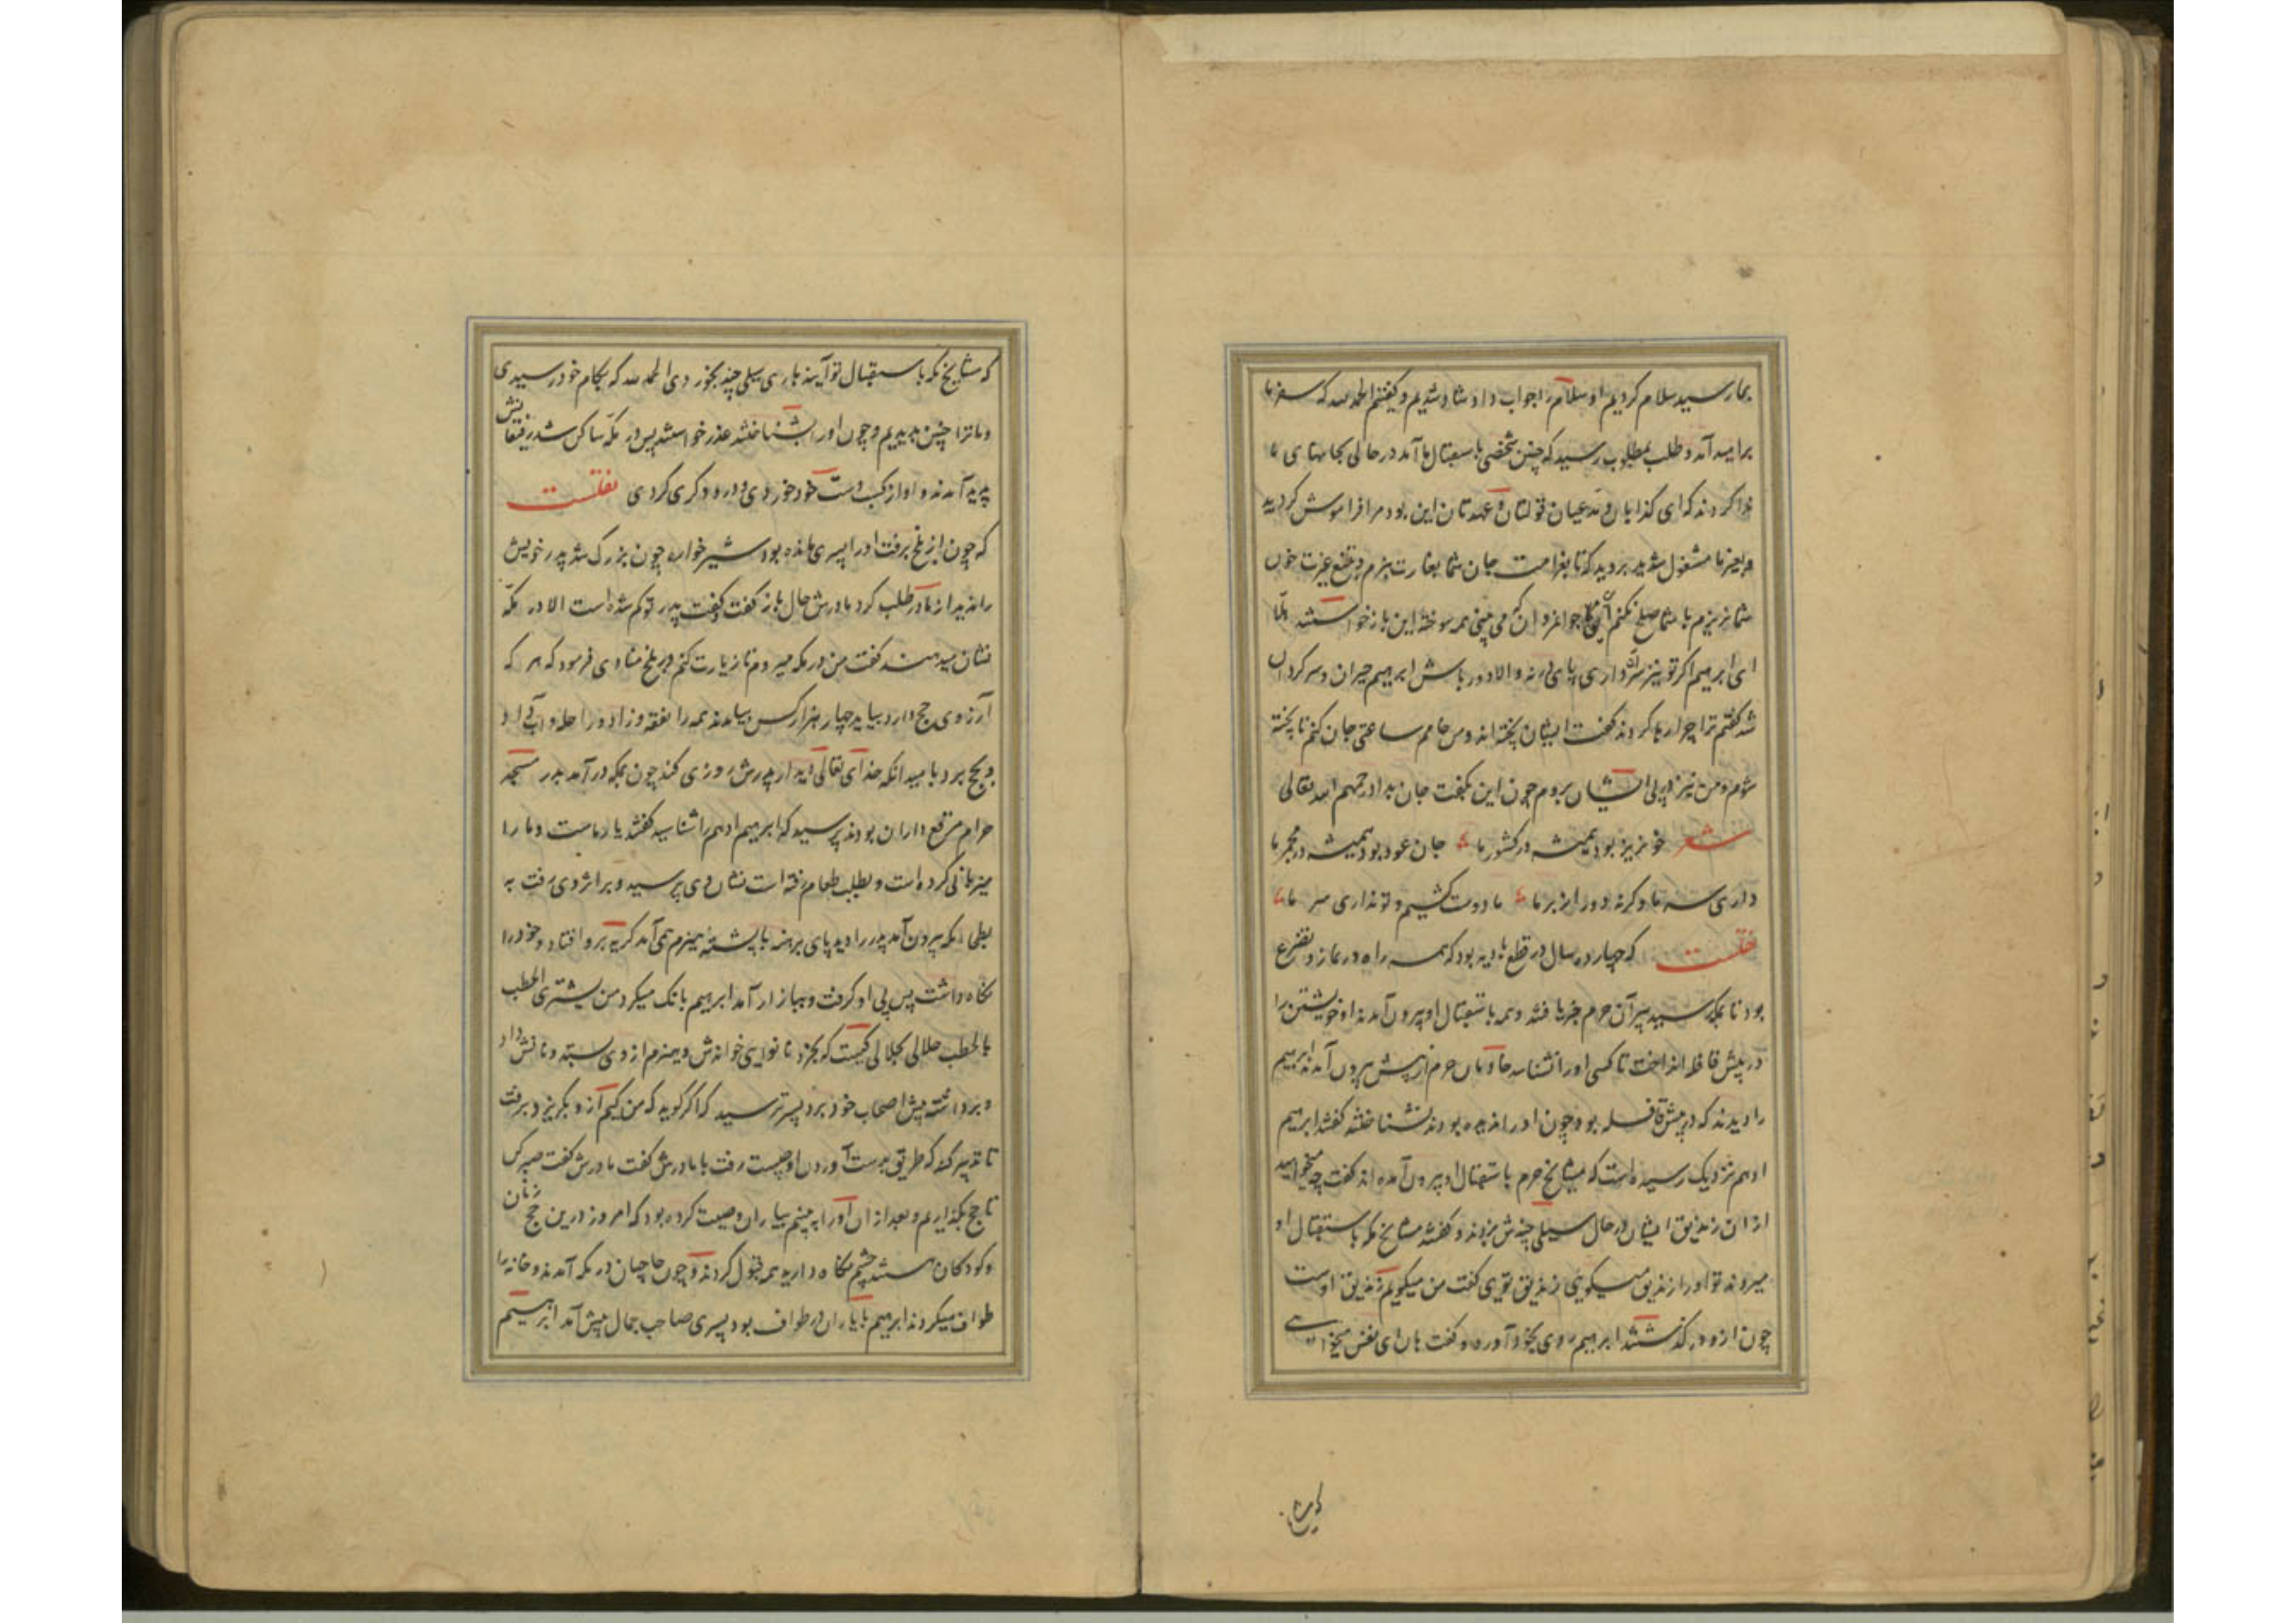 بما رسید سلام کردیم او سلام را جواب داد شاد شدیم و گفتیم الحمد لله که سفر ما
برامید آمد و طلب بمطلوب رسید که چنین شخصی باستقبال ما آمد در حالی بجانهای ما
ندا کردند که ای کذابان و مدعیان قولتان و عهدتان این بود مرا فراموش کردید
و بغیر ما مشغول شدید بروید که تا بغرامت جان شما بغارت نبرم و بتیغ غیرت خون
شما نریزم با شما صلح نکنم این جوانمردان که می بینی همه سوخته این بازخواستند هلا
ای ابراهیم اگر تو نیز سر داری پای در نه و الا دور باش ابراهیم حیران و سرگردان
شد گفتم ترا چرا رها کردند گفت ایشان پخته اند و من خامم ساعتی جان کنم تا پخته
شوم و من نیز در پی ایشان بروم چون این بگفت جان بداد رحمهم الله تعالی
شعر خونریز بود همیشه در کشور ما جان عود بود همیشه در مجمر ما
داری سر ما وگرنه دور از بر ما ما دوست کشیم و تو نداری سر ما
نقلست که چهارده سال در قطع بادیه بود که همه راه در نماز و تضرع
بود تا بمکه رسید پیران حرم خبر یافتند و همه باستقبال او بیرون آمدند او خویشتن را
در پیش قافله انداخت تا کسی او را نشناسد خادمان حرم از پیش بیرون آمدند ابراهیم
را دیدند که در پیش قافله بود چون او را ندیده بودند نشناختند گفتند ابراهیم
ادهم نزدیک رسیده است که مشایخ حرم باستقبال او بیرون آمده اند گفت چه میخواهید
از آن زندیق ایشان در حال سیلی چندش بزدند و گفتند مشایخ مکه باستقبال او
میروند تو او را زندیق میگوئی زندیق توی گفت من میگویم زندیق اوست
چون ازو درگذشتند ابراهیم روی بخود آورد و گفت هان ای نفس میخواستی
که مشایخ
که مشایخ مکه باستقبال تو آیند باری سیلی چند بخوردی الحمد لله که بکام خود رسیدی
و ما ترا چنین بدیدیم و چون او را بشناختند عذر خواستند پس در مکه ساکن شد رفیقانش
پدید آمدند و او از کسب دست خود خوردی و درودگری کردی نقلست
که چون از بلخ برفت او را پسری مانده بود شیرخواره چون بزرگ شد پدر خویش
را ندید از مادر طلب کرد مادرش حال باز گفت و گفت پدر تو گم شده است الا در مکه
نشان میدهند گفت من در مکه میروم تا زیارت کنم در بلخ منادی فرمود که هر که
آرزوی حج دارد بیاید چهار هزار کس بیامدند همه را نفقه و زاد و راحله و آب داد
و بحج برد بامید آنکه خدای تعالی دیدار پدرش روزی کند چون بمکه درآمد بدر مسجد
حرام مرقع داران بودند پرسید که ابراهیم ادهم را شناسید گفتند یار ماست و ما را
میزبانی کرده است و بطلب طعام رفته است نشان وی پرسید و بر اثر وی رفت به
بطحا مکه بیرون آمد پدر را دید پای برهنه با پشته هیزم همی آمد گریه برو افتاد و خود را
نگاه داشت پس پی او گرفت و ببازار آمد ابراهیم بانک میکرد من یشتری الحطب
بالحطب حلالی بحلالی کیست که بخرد نانوایی خواندش و هیزم از وی بستد و نانش داد
و برداشت پیش اصحاب خود برد پسر ترسید که اگر گوید که من کیم ازو بگریزد برفت
تا تدبیر کند که طریق بدست آوردن او چیست رفت با مادرش گفت مادرش گفت صبر کن
تا حج بگذاریم و بعد از آن او را ببینیم بیاران وصیت کرده بود که امروز درین حج زنان
و کودکان هستند چشم نگاه دارید همه قبول کردند و چون حاجیان در مکه آمدند و خانه را
طواف میکردند ابراهیم با یاران در طواف بود پسری صاحب جمال پیش آمد ابراهیم